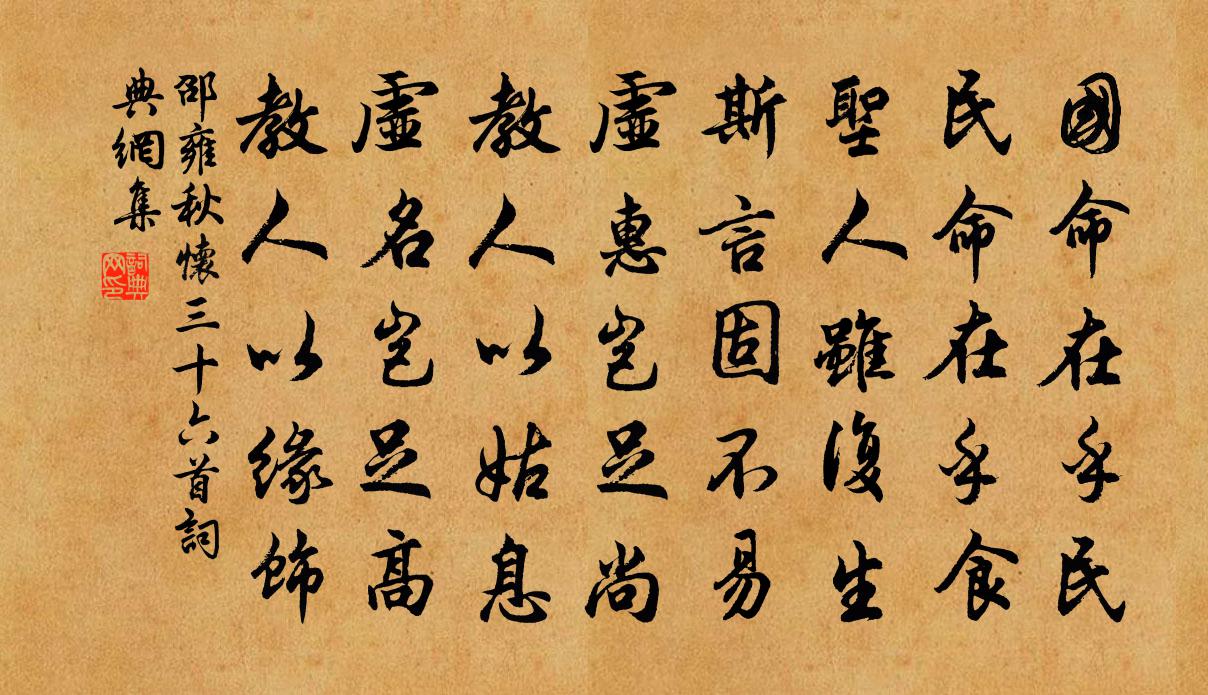 國命在乎民
民命在乎食
聖人雖復生
斯言固不易
虛惠豈足尚
教人以姑息
虛名豈足高
教人以緣飾
邵雍秋懷三十六首詞
典網集
詞典
网印